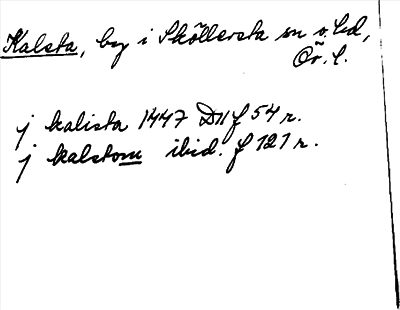 Kalsta, by i Sköllersta sn o. hd,
Ör. l.
j kalista 1447 D11 f 54 r.
j kalstom ibid. f 121 r.